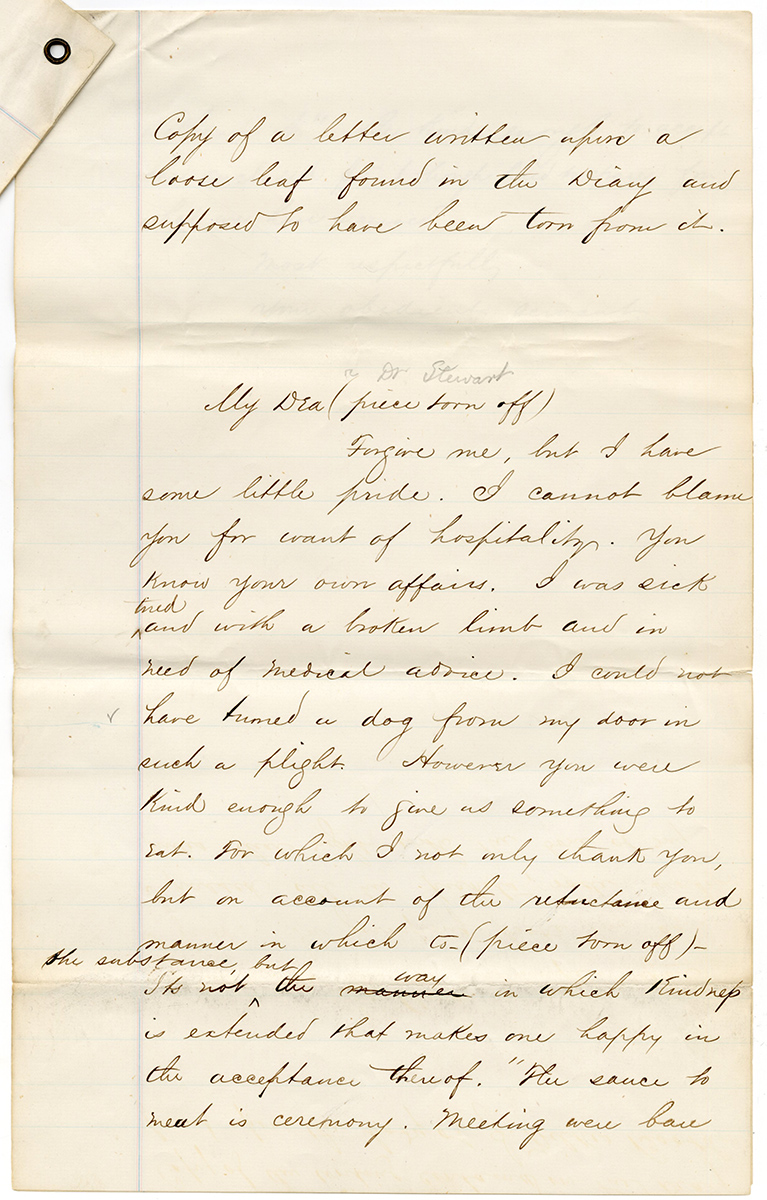 Copy of a letter written upon a
loose leaf found in the Diary and
supposed to have been torn from it.
r Dr Stewart
My Dea (piece torn off)
Forgive me, but I have
some little pride. I cannot blame
you for want of hospitality. You
know your own affairs. I was sick
tired
and with a broken limb and in
need of medical advice. I could not
have turned a dog from my door in
such a plight. However you were
kind enough to give us something to
eat. For which I not only thank you,
but on account of the reluctance and
manner in which to-(piece torn off)-
the substance, but
It's not the manner way in which kindness
is extended that makes one happy in
the acceptance thereof. "The sauce to
meat is ceremony. Meeting were bare